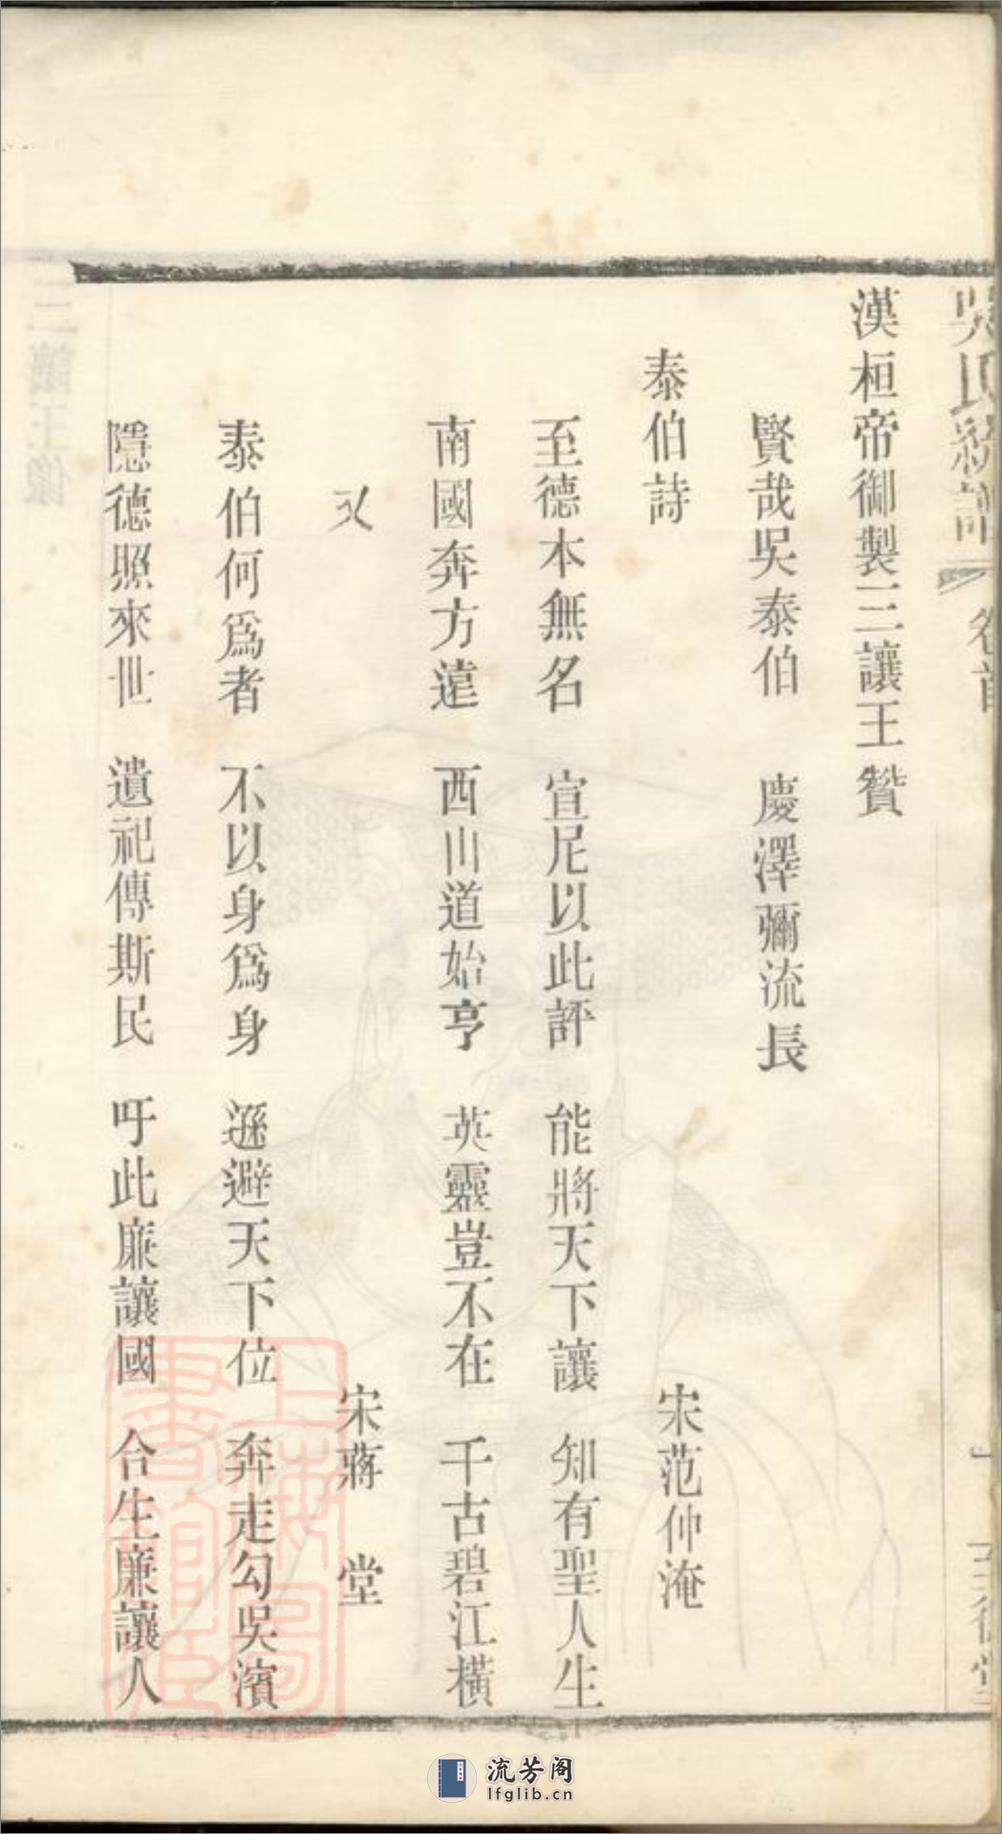 吳氏統譜 卷首 一 至德堂
漢桓帝御製三讓王贊
賢哉吳泰伯 慶澤彌流長
泰伯詩 宋范仲淹
至德本無名 宣尼以此評 能將天下讓 知有聖人生
南國奔方遠 西山道始亨 英靈豈不在 千古碧江橫
又 宋蔣 堂
泰伯何爲者 不以身爲身 遜避天下位 奔走勾吳濱
隱德照來世 遺祀傳斯民 吁此廉讓國 合生廉讓人
三讓王像
上海圖書館藏
流芳阁
lfglib.cn